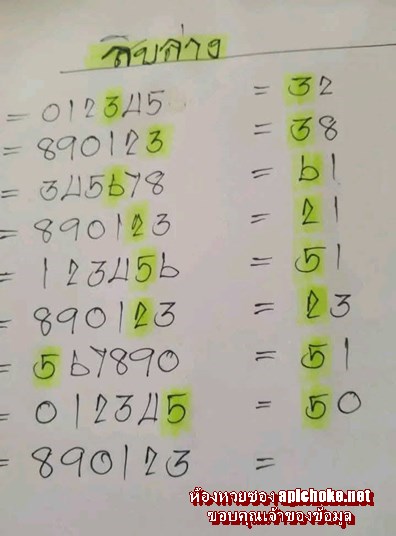 สิบล่าง
= 012345 = 32
= 890123 = 38
= 345678 = 61
= 890123 = 21
= 123456 = 51
= 890123 = 23
= 567890 = 51
= 012345 = 50
= 890123 =
ห้องหวยซอง apichoke.net
ขอบคุณเจ้าของข้อมูล